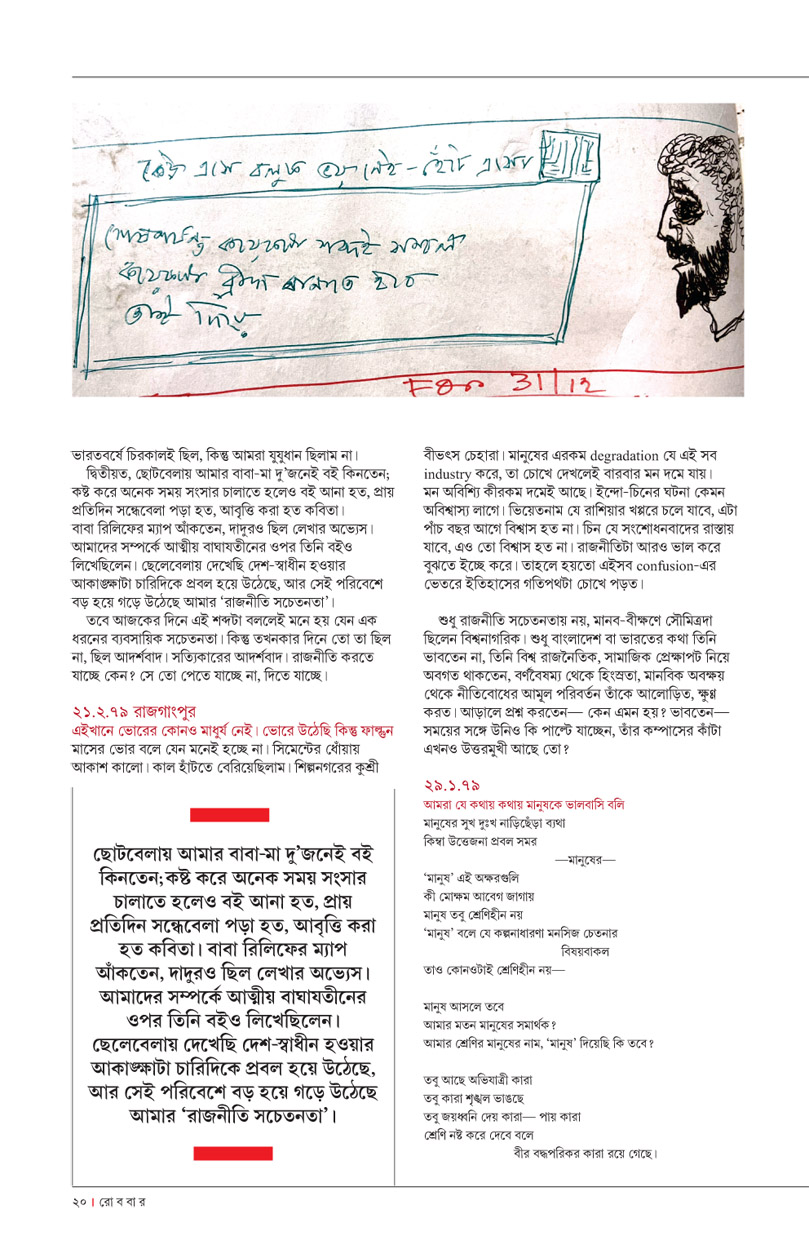 কেউ এসে বলুক ভয় নেই – হেঁটে এসো
শেষপর্যন্ত কয়েকটা শব্দই সম্বল
কয়েকটা
তাই দিয়ে
FOR 31/12
ভারতবর্ষে চিরকালই ছিল, কিন্তু আমরা যুযুধান ছিলাম না।
দ্বিতীয়ত, ছোটবেলায় আমার বাবা-মা দু’জনেই বই কিনতেন;
কষ্ট করে অনেক সময় সংসার চালাতে হলেও বই আনা হত, প্রায়
প্রতিদিন সন্ধেবেলা পড়া হত, আবৃত্তি করা হত কবিতা।
বাবা রিলিফের ম্যাপ আঁকতেন, দাদুরও ছিল লেখার অভ্যেস।
আমাদের সম্পর্কে আত্মীয় বাঘাযতীনের ওপর তিনি বইও
লিখেছিলেন। ছেলেবেলায় দেখেছি দেশ-স্বাধীন হওয়ার
আকাঙ্ক্ষাটা চারিদিকে প্রবল হয়ে উঠেছে, আর সেই পরিবেশে
বড় হয়ে গড়ে উঠেছে আমার ‘রাজনীতি সচেতনতা’।
তবে আজকের দিনে এই শব্দটা বললেই মনে হয় যেন এক
ধরনের ব্যবসায়িক সচেতনতা। কিন্তু তখনকার দিনে তো তা ছিল
না, ছিল আদর্শবাদ। সত্যিকারের আদর্শবাদ। রাজনীতি করতে
যাচ্ছে কেন? সে তো পেতে যাচ্ছে না, দিতে যাচ্ছে।
২১.২.৭৯ রাজগাংপুর
এইখানে ভোরের কোনও মাধুর্য নেই। ভোরে উঠেছি কিন্তু ফাল্গুন
মাসের ভোর বলে যেন মনেই হচ্ছে না। সিমেন্টের ধোঁয়ায়
আকাশ কালো। কাল হাঁটতে বেরিয়েছিলাম। শিল্পনগরের কুশ্রী
ছোটবেলায় আমার বাবা-মা দু’জনেই বই
কিনতেন;কষ্ট করে অনেক সময় সংসার
চালাতে হলেও বই আনা হত, প্রায়
প্রতিদিন সন্ধেবেলা পড়া হত, আবৃত্তি করা
হত কবিতা। বাবা রিলিফের ম্যাপ
আঁকতেন, দাদুরও ছিল লেখার অভ্যেস।
আমাদের সম্পর্কে আত্মীয় বাঘাযতীনের
ওপর তিনি বইও লিখেছিলেন।
ছেলেবেলায় দেখেছি দেশ-স্বাধীন হওয়ার
আকাঙ্ক্ষাটা চারিদিকে প্রবল হয়ে উঠেছে,
আর সেই পরিবেশে বড় হয়ে গড়ে উঠেছে
আমার ‘রাজনীতি সচেতনতা’।
বীভৎস চেহারা। মানুষের এরকম degradation যে এই সব
industry করে, তা চোখে দেখলেই বারবার মন দমে যায়।
মন অবিশ্যি কীরকম দমেই আছে। ইন্দো-চিনের ঘটনা কেমন
অবিশ্বাস্য লাগে। ভিয়েতনাম যে রাশিয়ার খপ্পরে চলে যাবে, এটা
পাঁচ বছর আগে বিশ্বাস হত না। চিন যে সংশোধনবাদের রাস্তায়
যাবে, এও তো বিশ্বাস হত না। রাজনীতিটা আরও ভাল করে
বুঝতে ইচ্ছে করে। তাহলে হয়তো এইসব confusion-এর
ভেতরে ইতিহাসের গতিপথটা চোখে পড়ত।
শুধু রাজনীতি সচেতনতায় নয়, মানব-বীক্ষণে সৌমিত্রদা
ছিলেন বিশ্বনাগরিক। শুধু বাংলাদেশ বা ভারতের কথা তিনি
ভাবতেন না, তিনি বিশ্ব রাজনৈতিক, সামাজিক প্রেক্ষাপট নিয়ে
অবগত থাকতেন, বর্ণবৈষম্য থেকে হিংস্রতা, মানবিক অবক্ষয়
থেকে নীতিবোধের আমূল পরিবর্তন তাঁকে আলোড়িত, ক্ষুণ্ণ
করত। আড়ালে প্রশ্ন করতেন— কেন এমন হয়? ভাবতেন—
সময়ের সঙ্গে উনিও কি পাল্টে যাচ্ছেন, তাঁর কম্পাসের কাঁটা
এখনও উত্তরমুখী আছে তো?
২৯.১.৭৯
আমরা যে কথায় কথায় মানুষকে ভালবাসি বলি
মানুষের সুখ দুঃখ নাড়িছেঁড়া ব্যথা
কিম্বা উত্তেজনা প্রবল সমর
—মানুষের—
‘মানুষ’ এই অক্ষরগুলি
কী মোক্ষম আবেগ জাগায়
মানুষ তবু শ্রেণিহীন নয়
‘মানুষ’ বলে যে কল্পনাধারণা মনসিজ চেতনার
বিষয়বাকল
তাও কোনওটাই শ্রেণিহীন নয়—
মানুষ আসলে তবে
আমার মতন মানুষের সমার্থক?
আমার শ্রেণির মানুষের নাম, ‘মানুষ’ দিয়েছি কি তবে?
তবু আছে অভিযাত্রী কারা
তবু কারা শৃঙ্খল ভাঙছে
তবু জয়ধ্বনি দেয় কারা— পায় কারা
শ্রেণি নষ্ট করে দেবে বলে
বীর বদ্ধপরিকর কারা রয়ে গেছে।
২০ । রো ব বা র